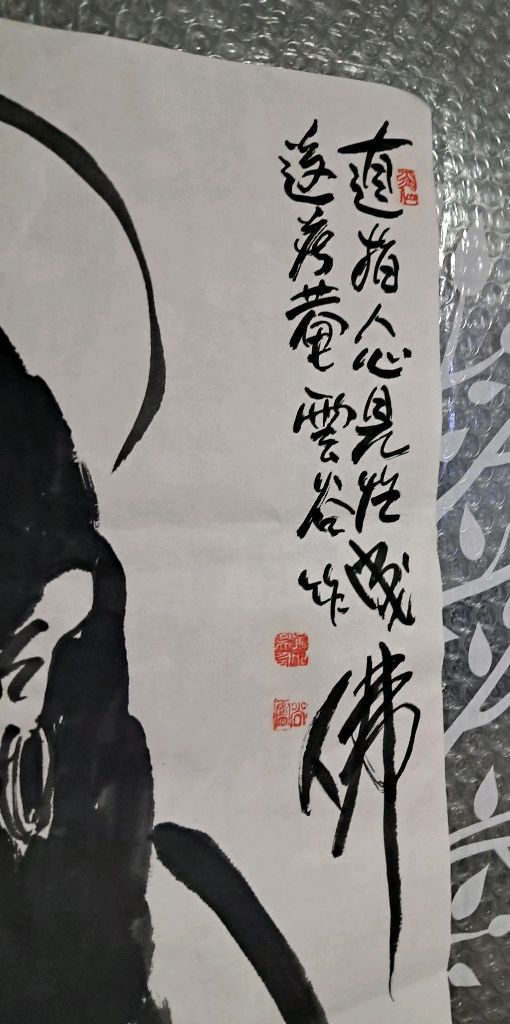 直指人心見性成佛
菴雲谷作